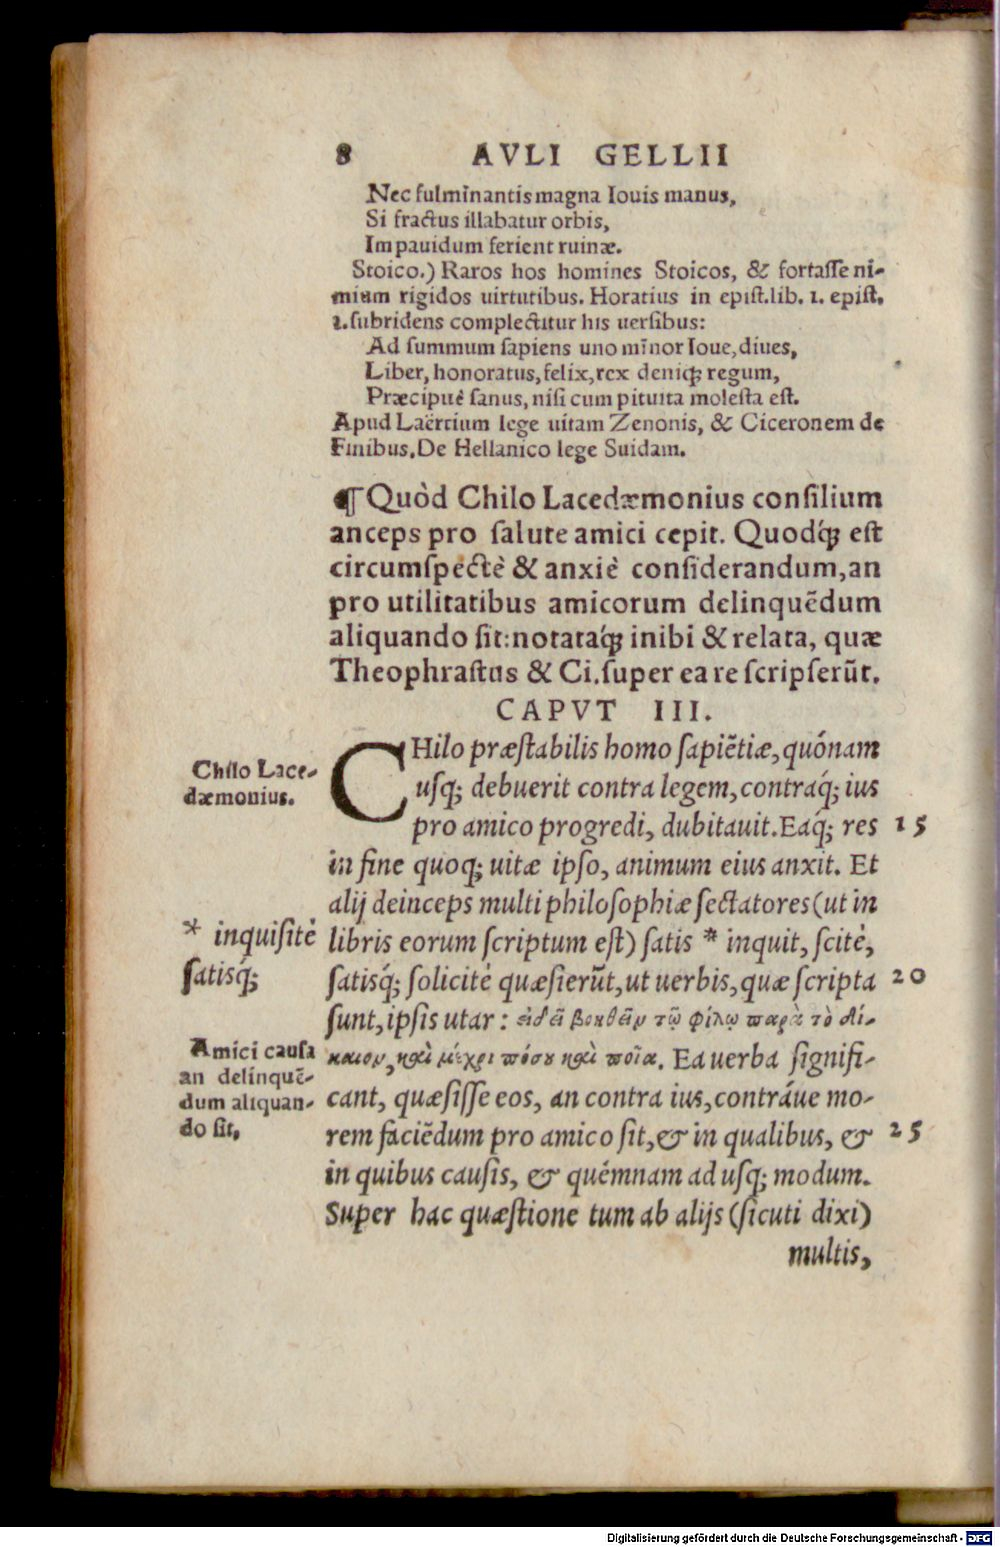 8 AVLI GELLII
Nec fulminantis magna Iouis manus,
Si fractus illabatur orbis,
Impauidum ferient ruinæ.
Stoico.) Raros hos homines Stoicos, & fortasse ni-
mium rigidos uirtutibus. Horatius in epist. lib. 1. epist.
1. subridens complectitur his uersibus:
Ad summum sapiens uno minor Ioue, diues,
Liber, honoratus, felix, rex deniq; regum,
Præcipuè sanus, nisi cum pituita molesta est.
Apud Laërtium lege uitam Zenonis, & Ciceronem de
Finibus. De Hellanico lege Suidam.
¶ Quòd Chilo Lacedæmonius consilium
anceps pro salute amici cepit. Quodq́; est
circumspectè & anxiè considerandum, an
pro utilitatibus amicorum delinquẽdum
aliquando sit: notataq́; inibi & relata, quæ
Theophrastus & Ci. super ea re scripserũt.
CAPVT III.
CHilo præstabilis homo sapiẽtiæ, quónam
usq; debuerit contra legem, contraq́; ius
pro amico progredi, dubitauit. Eaq́; res 15
in fine quoq; uitæ ipso, animum eius anxit. Et
alij deinceps multi philosophiæ sectatores (ut in
libris eorum scriptum est) satis * inquit, scitè,
satisq́; solicitè quæsierũt, ut uerbis, quæ scripta 20
sunt, ipsis utar: εἰ δεῖ βοηθεῖν τῷ φίλῳ παρὰ τὸ δί-
καιον, καὶ μέχρι πόσου καὶ ποῖα. Ea uerba signifi-
cant, quæsisse eos, an contra ius, contráue mo-
rem faciẽdum pro amico sit, & in qualibus, & 25
in quibus causis, & quémnam ad usq; modum.
Super hac quæstione tum ab alijs (sicuti dixi)
multis,
Chilo Lace-
dæmonius.
* inquisitè
satisq́;
Amici causa
an delinquẽ-
dum aliquan-
do sit.
Digitalisierung gefördert durch die Deutsche Forschungsgemeinschaft - DFG